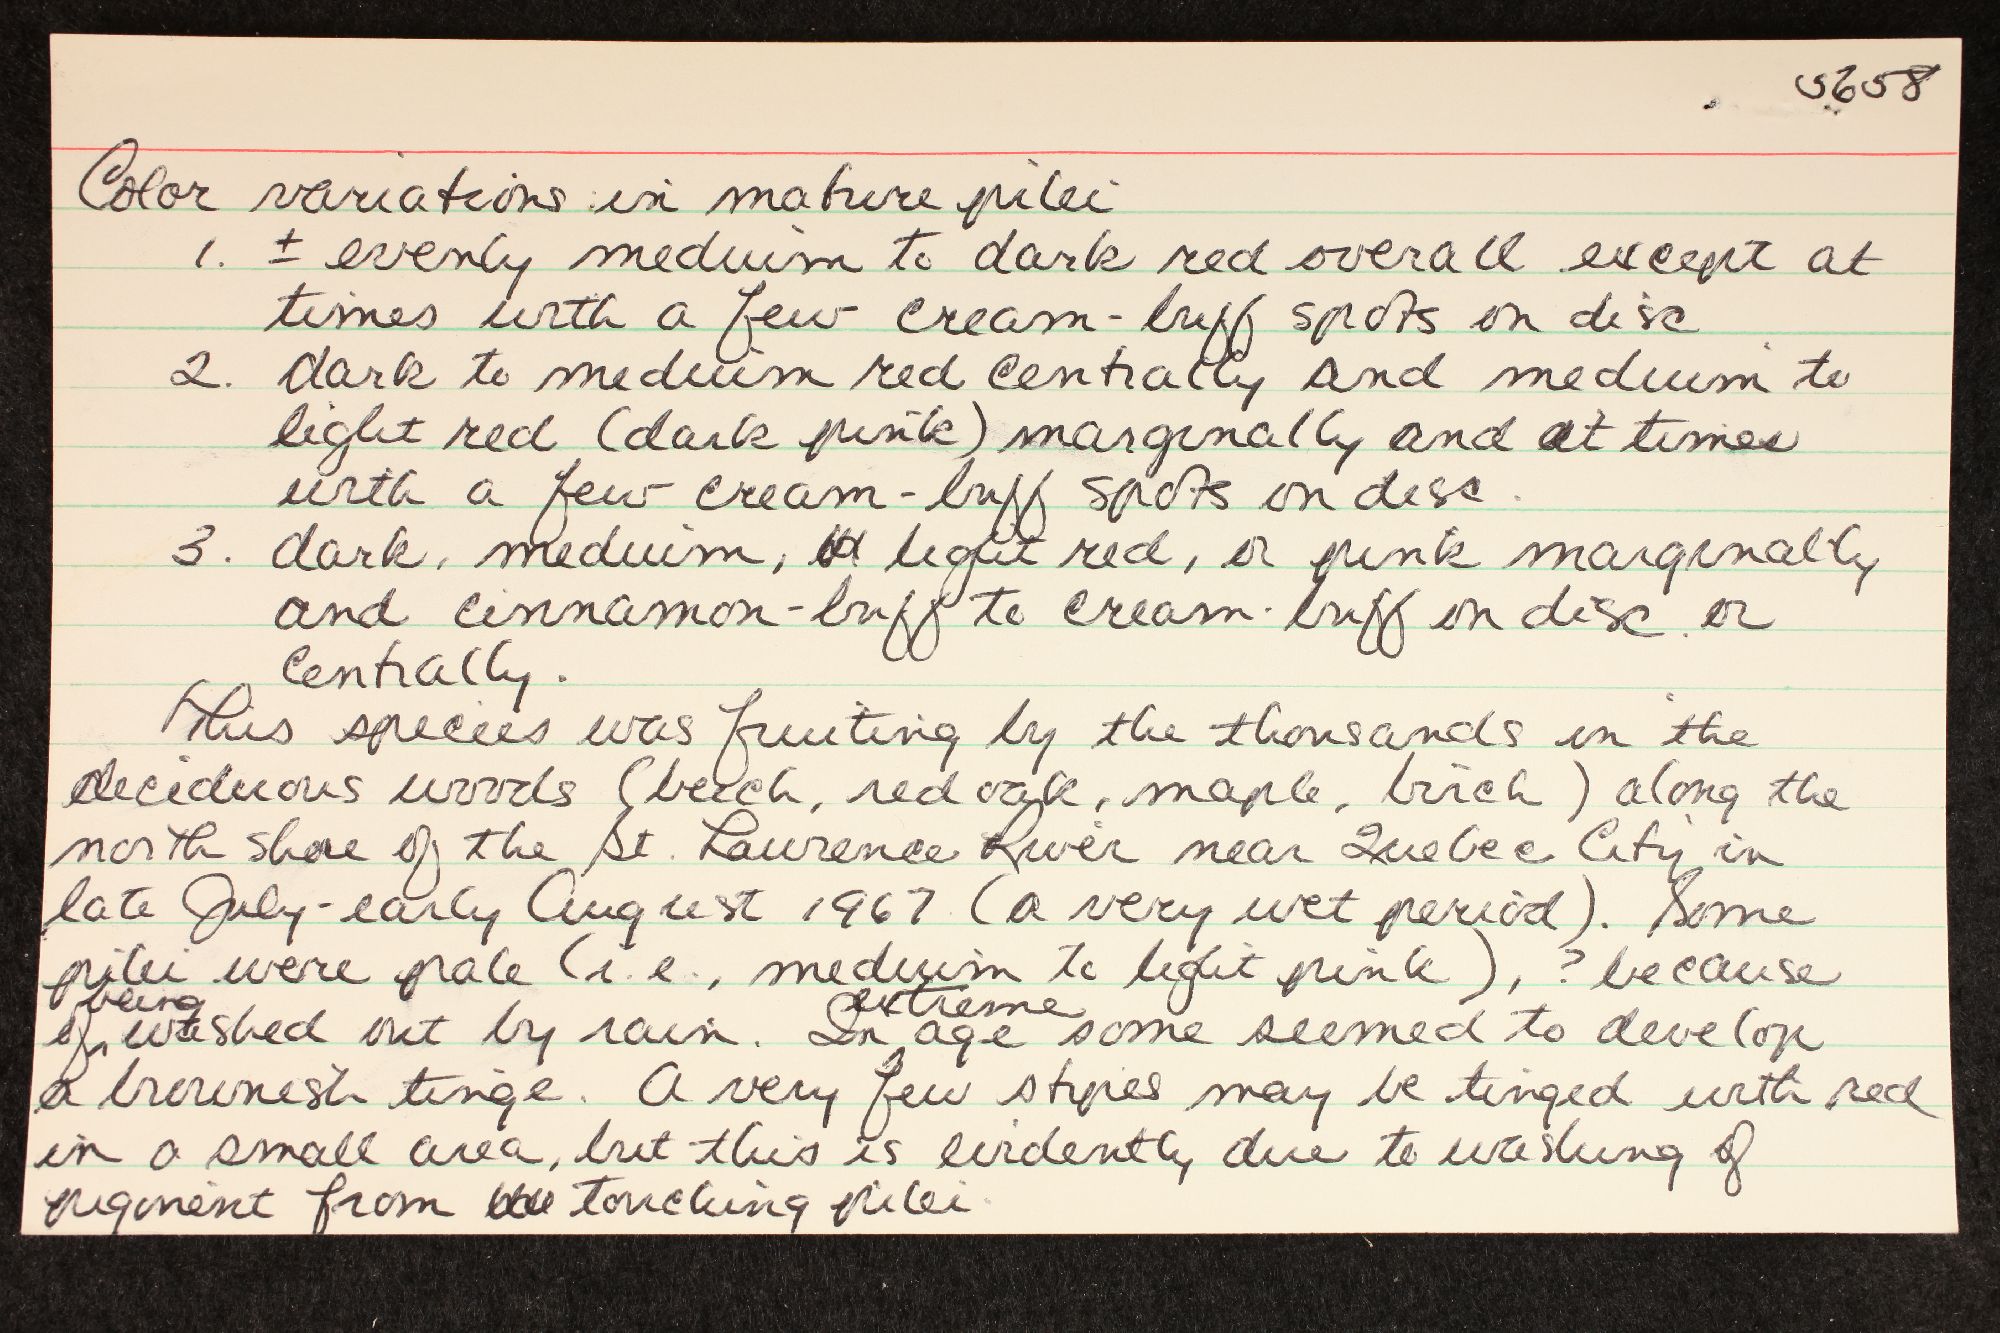 5658
Color variations in mature pilei
1. ± evenly medium to dark red overall except at
times with a few cream-buff spots on disc
2. dark to medium red centrally and medium to
light red (dark pink) marginally and at times
with a few cream-buff spots on disc.
3. dark, medium, light red, or pink marginally
and cinnamon-buff to cream-buff on disc or
centrally.
This species was fruiting by the thousands in the
deciduous woods (beech, red oak, maple, birch) along the
north shore of the St. Lawrence River near Quebec City in
late July-early August 1967 (a very wet period). Some
pilei were pale (i.e., medium to light pink), ? because
of being washed out by rain. In extreme age some seemed to develop
a brownish tinge. A very few stipes may be tinged with red
in a small area, but this is evidently due to washing of
pigment from touching pilei.